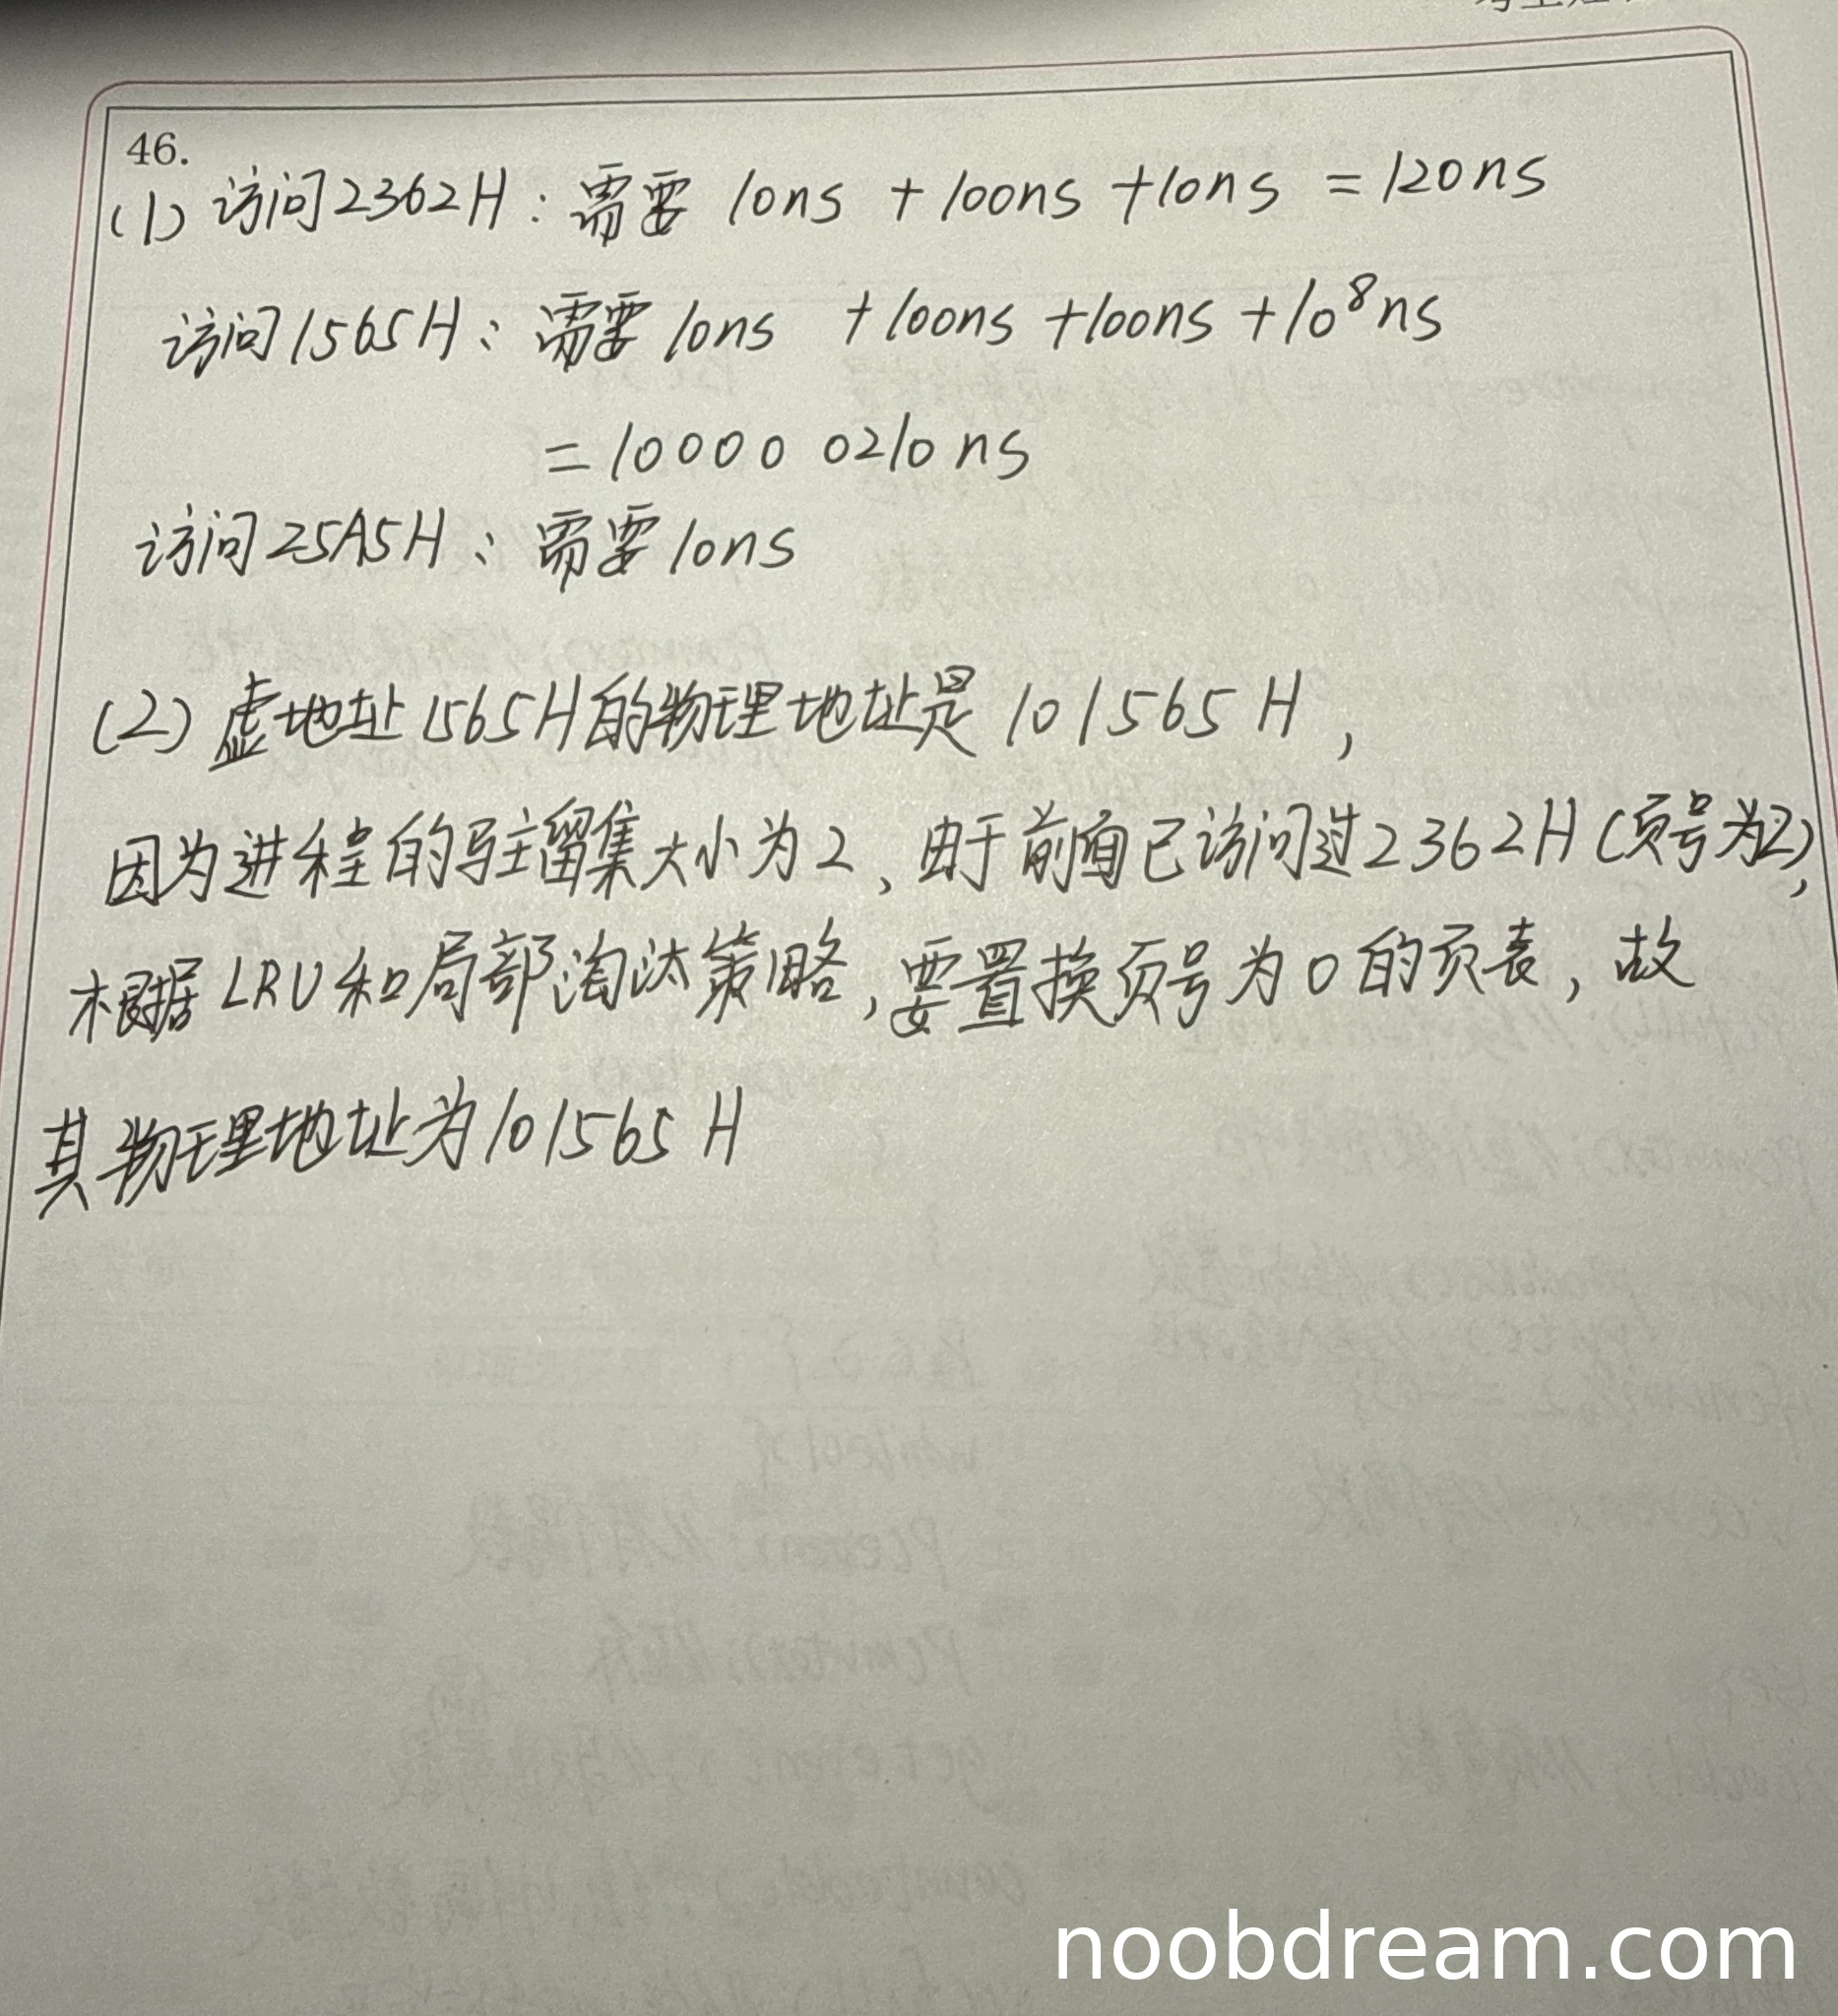 46.
(1) 访问2362H：需要 10ns + 100ns +10ns = 120ns
访问1565H：需要10ns +100ns +100ns +10⁸ns
= 10000 0210 ns
访问25A5H：需要10ns
(2) 虚地址1565H的物理地址是 101565 H，
因为进程的驻留集大小为2、由于前面已访问过2362H(页号为2)，
根据LRU和局部淘汰策略，要置换页号为0的页表，故
其物理地址为101565 H
noobdream.com